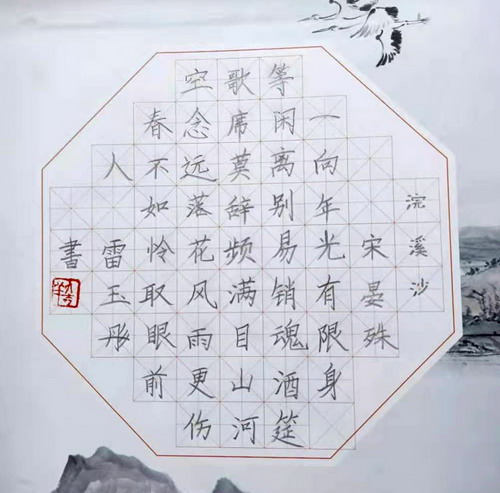 浣溪沙
宋晏殊
一向年光有限身
等闲离别易销魂酒筵
歌席莫辞频满目山河
空念远落花风雨更伤
春不如怜取眼前
人 雷玉彤
書